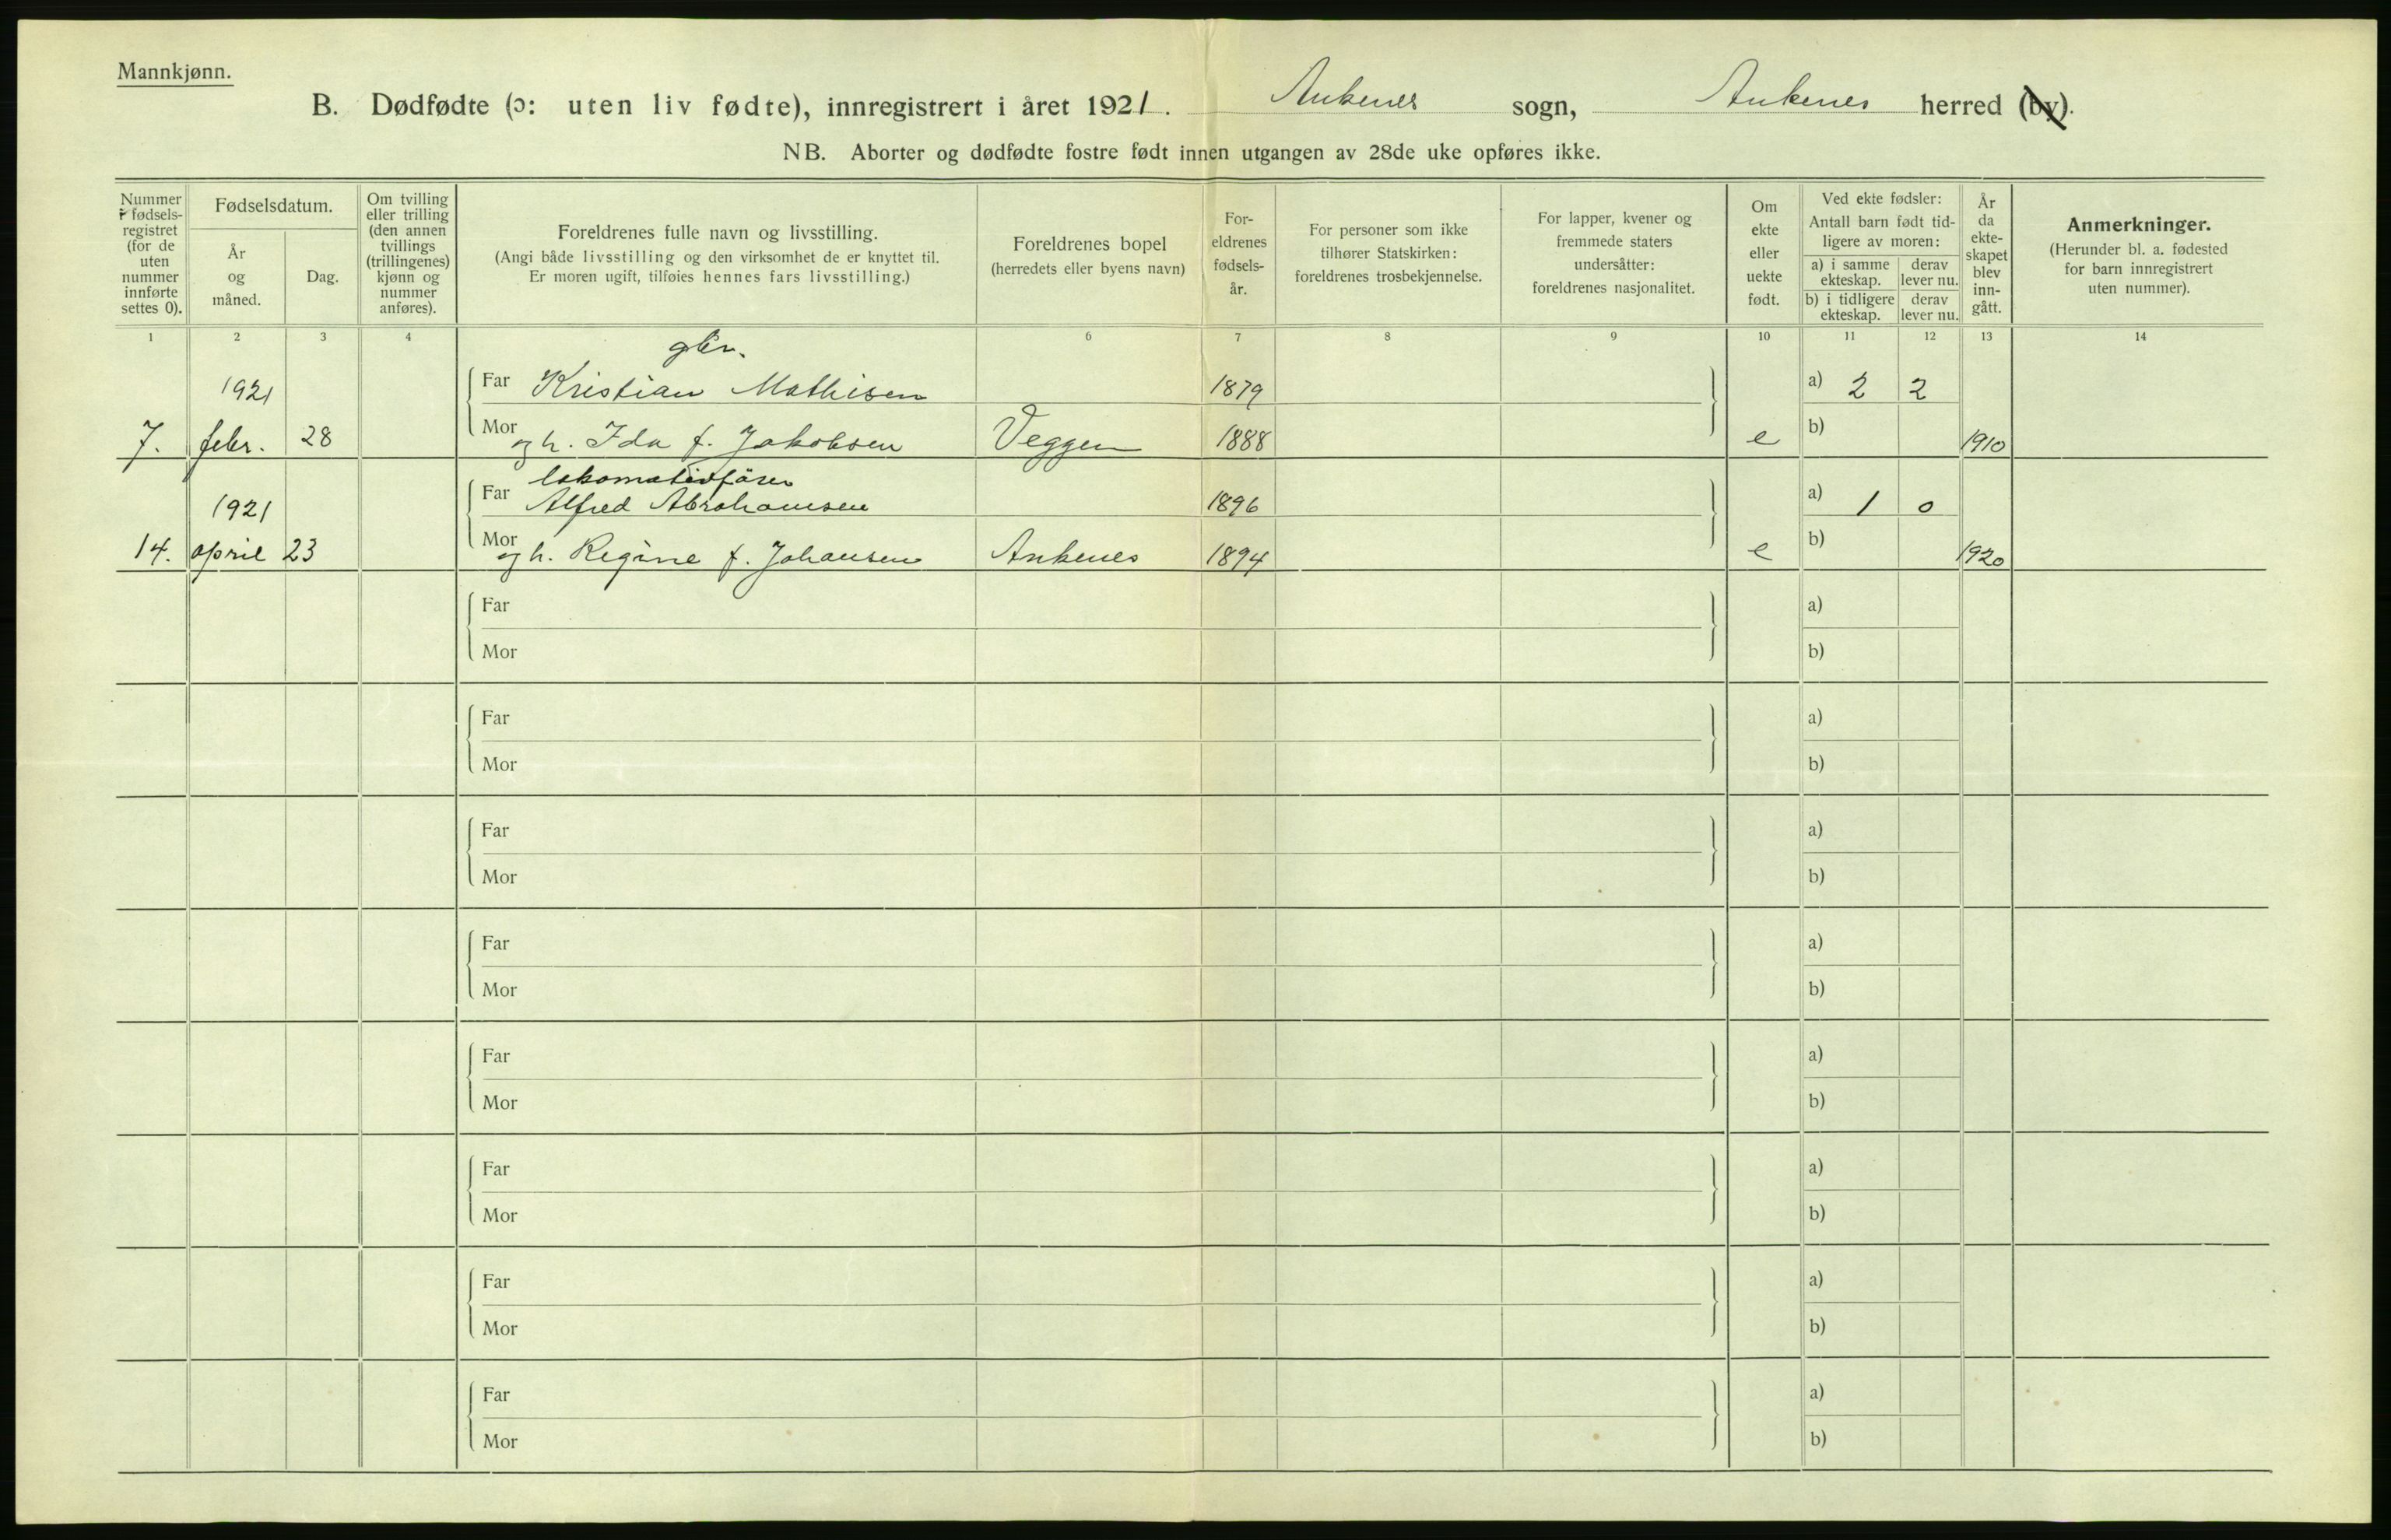 Mannkjønn.
B. Dødfødte (ɔ: uten liv fødte), innregistrert i året 1921. Ankenes sogn, Ankenes herred (by).
NB. Aborter og dødfødte fostre født innen utgangen av 28de uke opføres ikke.
Nummer
i fødsels-
registret
(for de
uten
nummer
innførte
settes 0).
Fødselsdatum.
År
og
måned.
Dag.
Om tvilling
eller trilling
(den annen
tvillings
(trillingenes)
kjønn og
nummer
anføres).
Foreldrenes fulle navn og livsstilling.
(Angi både livsstilling og den virksomhet de er knyttet til.
Er moren ugift, tilføies hennes fars livsstilling.)
Foreldrenes bopel
(herredets eller byens navn)
For-
eldrenes
fødsels-
år.
For personer som ikke
tilhører Statskirken:
foreldrenes trosbekjennelse.
For lapper, kvener og
fremmede staters
undersåtter:
foreldrenes nasjonalitet.
Om
ekte
eller
uekte
født.
Ved ekte fødsler:
Antall barn født tid-
ligere av moren:
a) i samme
ekteskap.
derav
lever nu.
b) i tidligere
ekteskap.
derav
lever nu.
År
da
ekte-
skapet
blev
inn-
gått.
Anmerkninger.
(Herunder bl. a. fødested
for barn innregistrert
uten nummer).
1 2 3 4 6 7 8 9 10 11 12 13 14
gbr.
1921 Far Kristian Mathisen 1879 a) 2 2
7. febr. 28 Mor og h. Ida f. Jakobsen Veggen 1888 e b) 1910
lokomotivfører
1921 Far Alfred Abrahamsen 1896 a) 1 0
14. april 23 Mor og h. Regine f. Johansen Ankenes 1894 e b) 1920
Far a)
Mor b)
Far a)
Mor b)
Far a)
Mor b)
Far a)
Mor b)
Far a)
Mor b)
Far a)
Mor b)
Far a)
Mor b)
Far a)
Mor b)